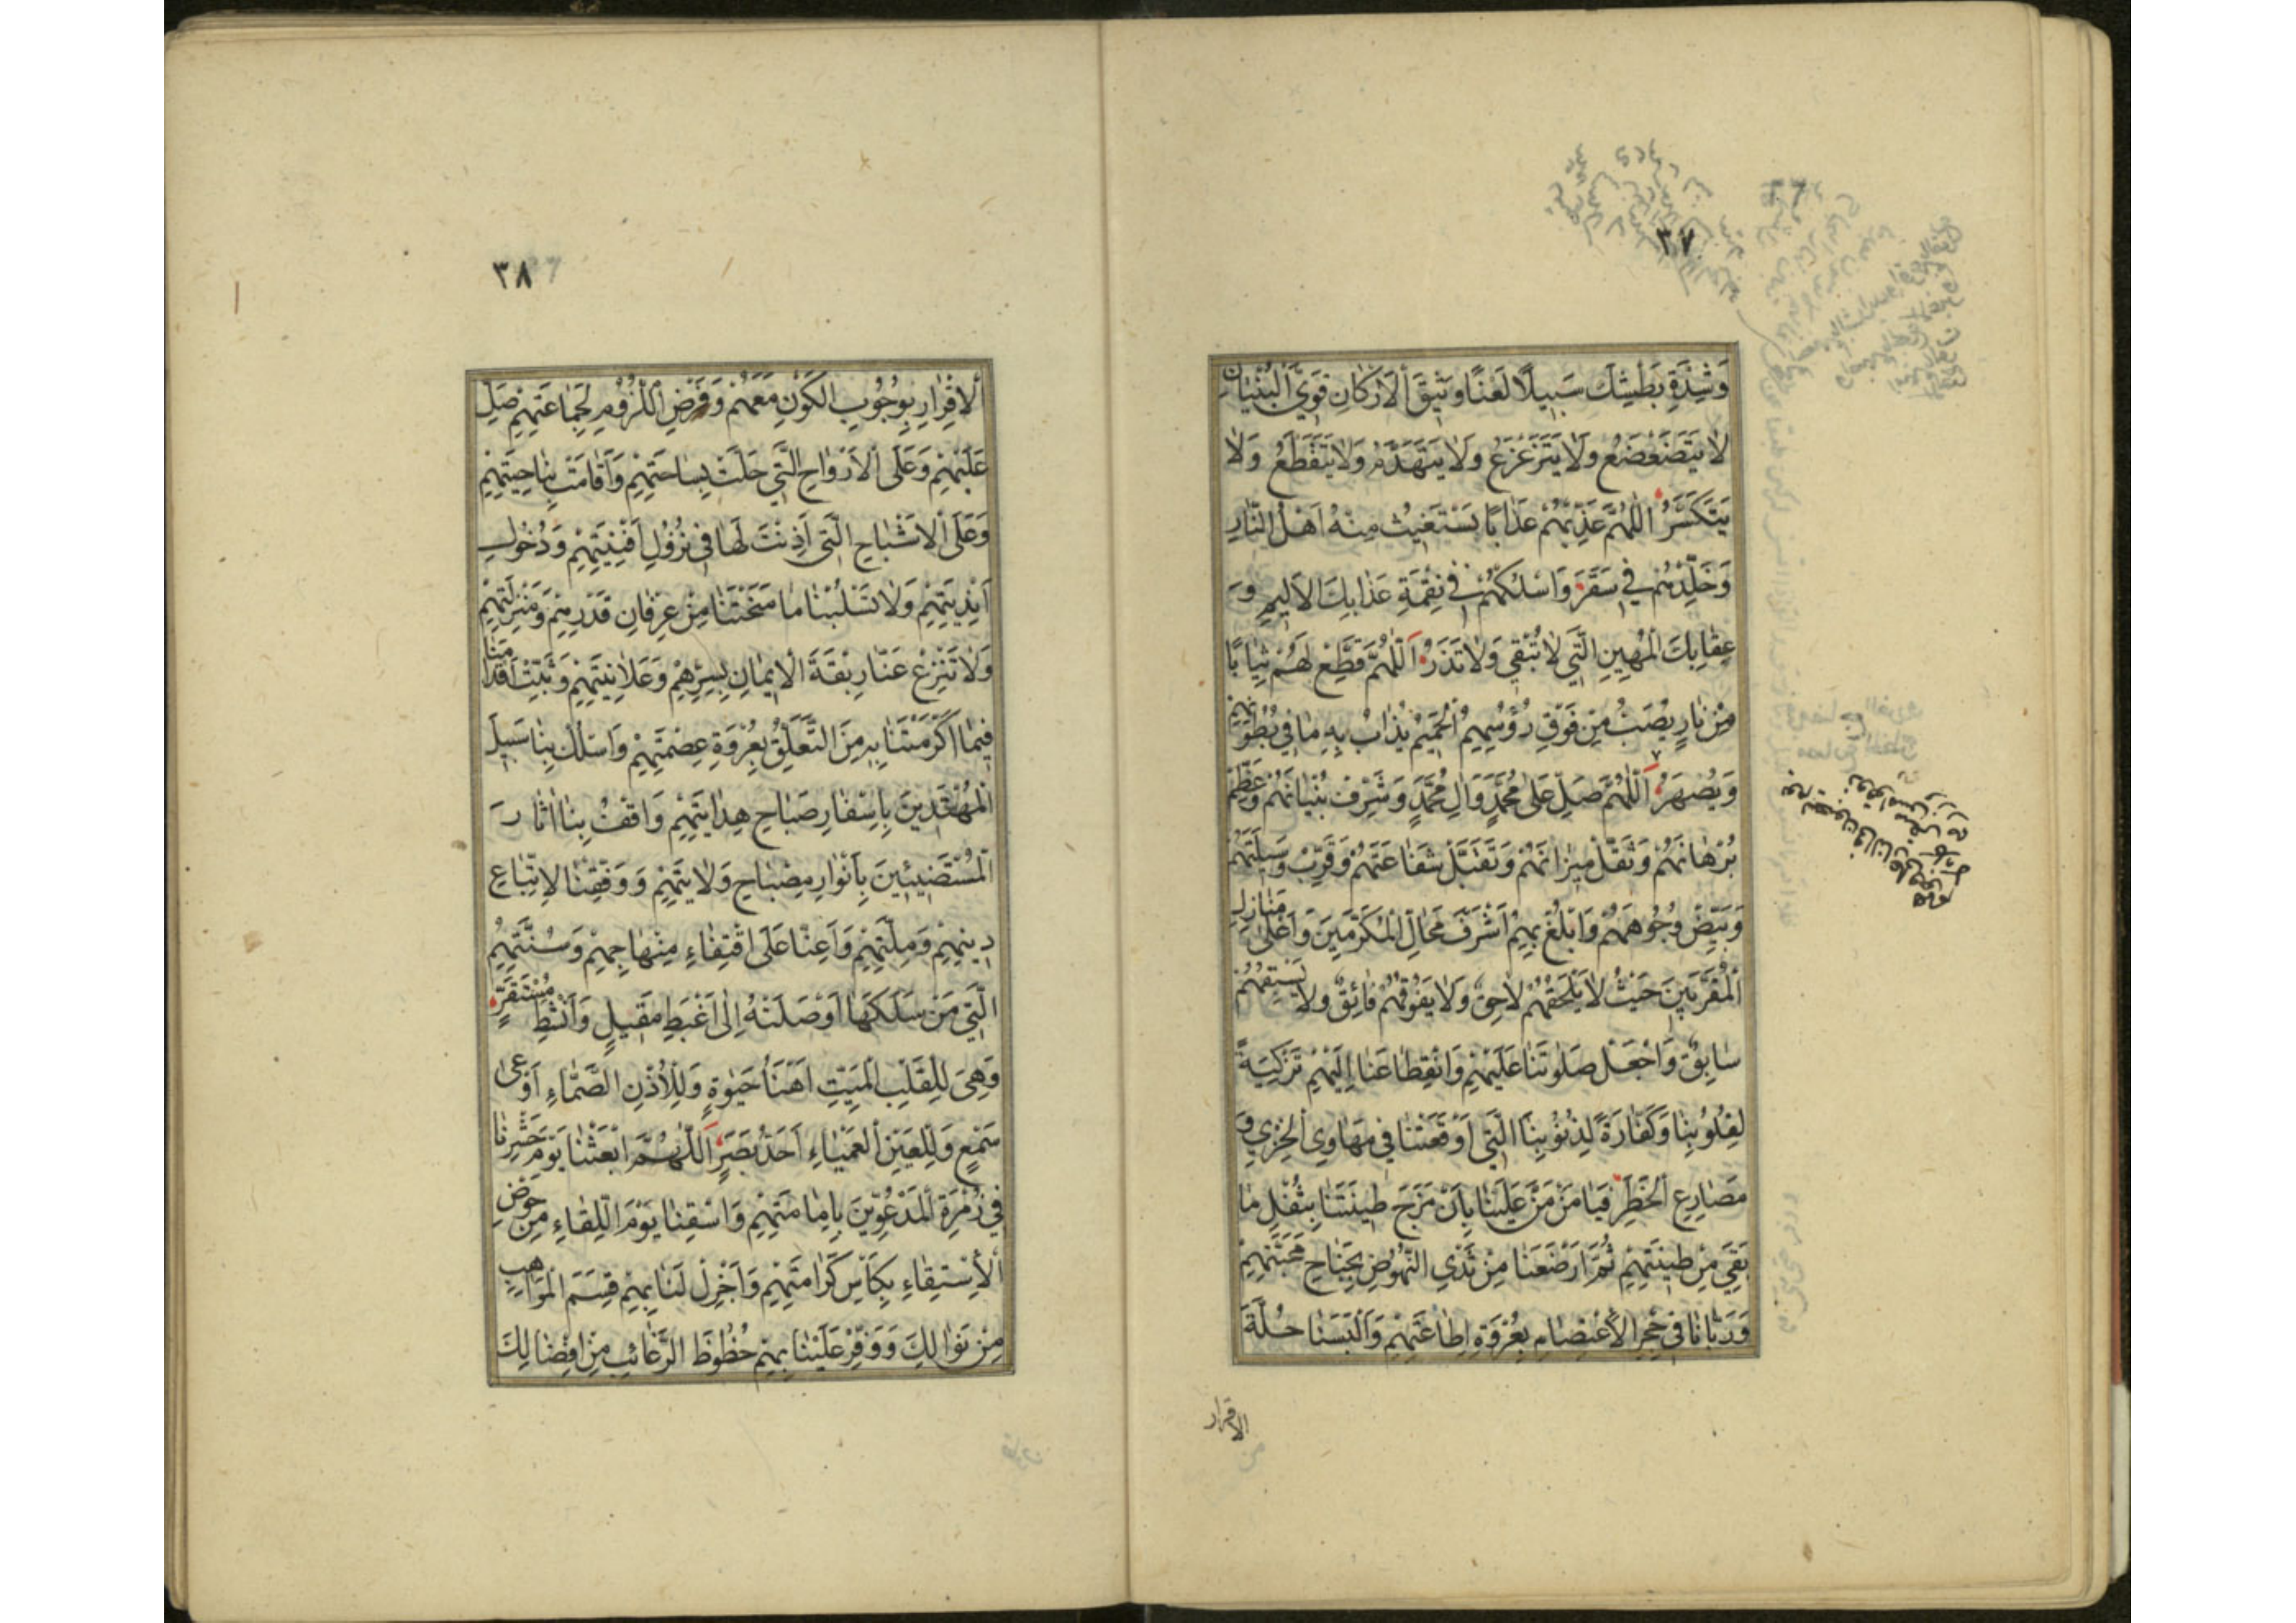 ٣٧
وَشِدَّةِ بَطْشِكَ سَبِيلًا لَعْنًا وَثِيقَ الْاَرْكَانِ قَوِيَّ الْبُنْيَانِ
لَا يَتَضَعْضَعُ وَلَا يَتَزَعْزَعُ وَلَا يَتَهَدَّمُ وَلَا يَتَقَطَّعُ وَلَا
يَتَكَسَّرُ اَللّٰهُمَّ عَذِّبْهُمْ عَذَابًا يَسْتَغِيثُ مِنْهُ اَهْلُ النَّارِ
وَخَلِّدْهُمْ فِي سَقَرَ وَاسْلُكْهُمْ فِي نِقْمَةِ عَذَابِكَ الْاَلِيمِ وَ
عِقَابِكَ الْمُهِينِ الَّتِي لَا تُبْقِي وَلَا تَذَرُ اَللّٰهُمَّ قَطِّعْ لَهُمْ ثِيَابًا
مِنْ نَارٍ يُصَبُّ مِنْ فَوْقِ رُؤُسِهِمُ الْحَمِيمُ يُذَابُ بِهِ مَا فِي بُطُونِهِمْ
وَيُصْهَرُ اَللّٰهُمَّ صَلِّ عَلَى مُحَمَّدٍ وَالِ مُحَمَّدٍ وَشَرِّفْ بُنْيَانَهُمْ وَعَظِّمْ
بُرْهَانَهُمْ وَثَقِّلْ مِيزَانَهُمْ وَتَقَبَّلْ شَفَاعَتَهُمْ وَقَرِّبْ وَسِيلَتَهُمْ
وَبَيِّضْ وُجُوهَهُمْ وَابْلُغْ بِهِمْ اَشْرَفَ مَحَالِّ الْمُكَرَّمِينَ وَاَعْلَى مَنَازِلِ
الْمُقَرَّبِينَ حَيْثُ لَا يَلْحَقُهُمْ لَاحِقٌ وَلَا يَفُوقُهُمْ فَائِقٌ وَلَا يَسْبِقُهُمْ
سَابِقٌ وَاجْعَلْ صَلَوٰتَنَا عَلَيْهِمْ وَانْقِطَاعَنَا اِلَيْهِمْ تَزْكِيَةً
لِقُلُوبِنَا وَكَفَّارَةً لِذُنُوبِنَا الَّتِي اَوْقَعَتْنَا فِي مَهَاوِي الْخِزْيِ وَ
مَصَارِعِ الْخَطَرِ فَيَا مَنْ مَنَّ عَلَيْنَا بِاَنْ مَزَجَ طِينَتَنَا بِثُفْلِ مَا
بَقِيَ مِنْ طِينَتِهِمْ ثُمَّ اَرْضَعَنَا مِنْ ثَدْيِ النُّهُوضِ بِجَنَاحِ مَحَبَّتِهِمْ
وَرَبَّانَا فِي حِجْرِ الْاِعْتِصَامِ بِعُرْوَةِ اِطَاعَتِهِمْ وَاَلْبَسَنَا حُلَّةَ
الاقرار
٣٨
الْاِقْرَارِ بِوُجُوبِ الْكَوْنِ مَعَهُمْ وَفَرْضِ اللُّزُومِ لِجَمَاعَتِهِمْ صَلِّ
عَلَيْهِمْ وَعَلَى الْاَرْوَاحِ الَّتِي حَلَّتْ بِسَاحَتِهِمْ وَاَقَامَتْ بِنَاحِيَتِهِمْ
وَعَلَى الْاَشْبَاحِ الَّتِي اَذِنْتَ لَهَا فِي نُزُولِ اَفْنِيَتِهِمْ وَدُخُولِ
اَنْدِيَتِهِمْ وَلَا تَسْلُبْنَا مَا مَنَحْتَنَا مِنْ عِرْفَانِ قَدْرِهِمْ وَمَنْزِلَتِهِمْ
وَلَا تَنْزِعْ عَنَّا رِبْقَةَ الْاِيمَانِ بِسِرِّهِمْ وَعَلَانِيَتِهِمْ وَثَبِّتْ اَقْدَامَنَا
فِيمَا اَكْرَمْتَنَا بِهِ مِنَ التَّعَلُّقِ بِعُرْوَةِ عِصْمَتِهِمْ وَاسْلُكْ بِنَا سَبِيلَ
الْمُهْتَدِينَ بِاِسْفَارِ صَبَاحِ هِدَايَتِهِمْ وَاقْفُ بِنَا اٰثَارَ
الْمُسْتَضِيئِينَ بِاَنْوَارِ مِصْبَاحِ وَلَايَتِهِمْ وَوَفِّقْنَا لِاتِّبَاعِ
دِينِهِمْ وَمِلَّتِهِمْ وَاَعِنَّا عَلَى اقْتِفَاءِ مِنْهَاجِهِمْ وَسُنَّتِهِمُ
الَّتِي مَنْ سَلَكَهَا اَوْصَلَتْهُ اِلَى اَغْبَطِ مَقِيلٍ وَاَنْشَطِ مُسْتَقَرٍّ
وَهِيَ لِلْقَلْبِ الْمَيِّتِ اَهْنَأُ حَيٰوةٍ وَلِلْاُذُنِ الصَّمَّاءِ اَوْعَى
سَمْعٍ وَلِلْعَيْنِ الْعَمْيَاءِ اَحَدُّ بَصَرٍ اَللّٰهُمَّ ابْعَثْنَا يَوْمَ حَشْرِنَا
فِي زُمْرَةِ الْمَدْعُوِّينَ بِاِمَامَتِهِمْ وَاسْقِنَا يَوْمَ اللِّقَاءِ مِنْ حَوْضِ
الْاِسْتِقَاءِ بِكَأْسِ كَرَامَتِهِمْ وَاَجْزِلْ لَنَا بِهِمْ قِسَمَ الْمَوَاهِبِ
مِنْ نَوَالِكَ وَوَفِّرْ عَلَيْنَا بِهِمْ حُظُوظَ الرَّغَائِبِ مِنْ اِفْضَالِكَ